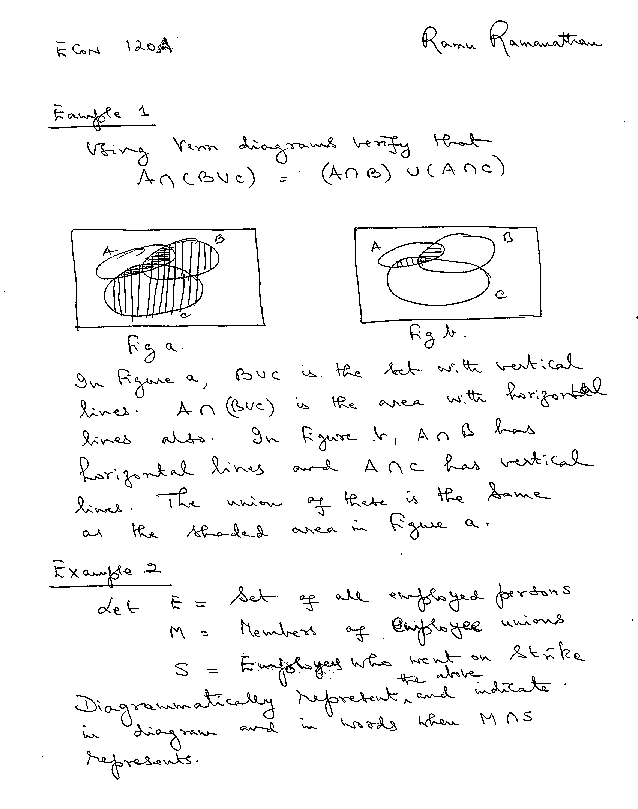 ECON 120A
Ramu Ramanathan
Eample 1
Using Venn diagrams verify that
A∩(B∪C) = (A∩B) ∪ (A∩C)
A B C
Fig a.
A B C
Fig b.
In Figure a, B∪C is the set with vertical
lines. A∩(B∪C) is the area with horizontal
lines also. In Figure b, A∩B has
horizontal lines and A∩C has vertical
lines. The union of these is the same
as the shaded area in Figure a.
Example 2
Let E = Set of all employed persons
M = Members of employee unions
S = Employees who went on Strike
Diagrammatically represent the above, and indicate
in diagram and in words when M∩S
represents.